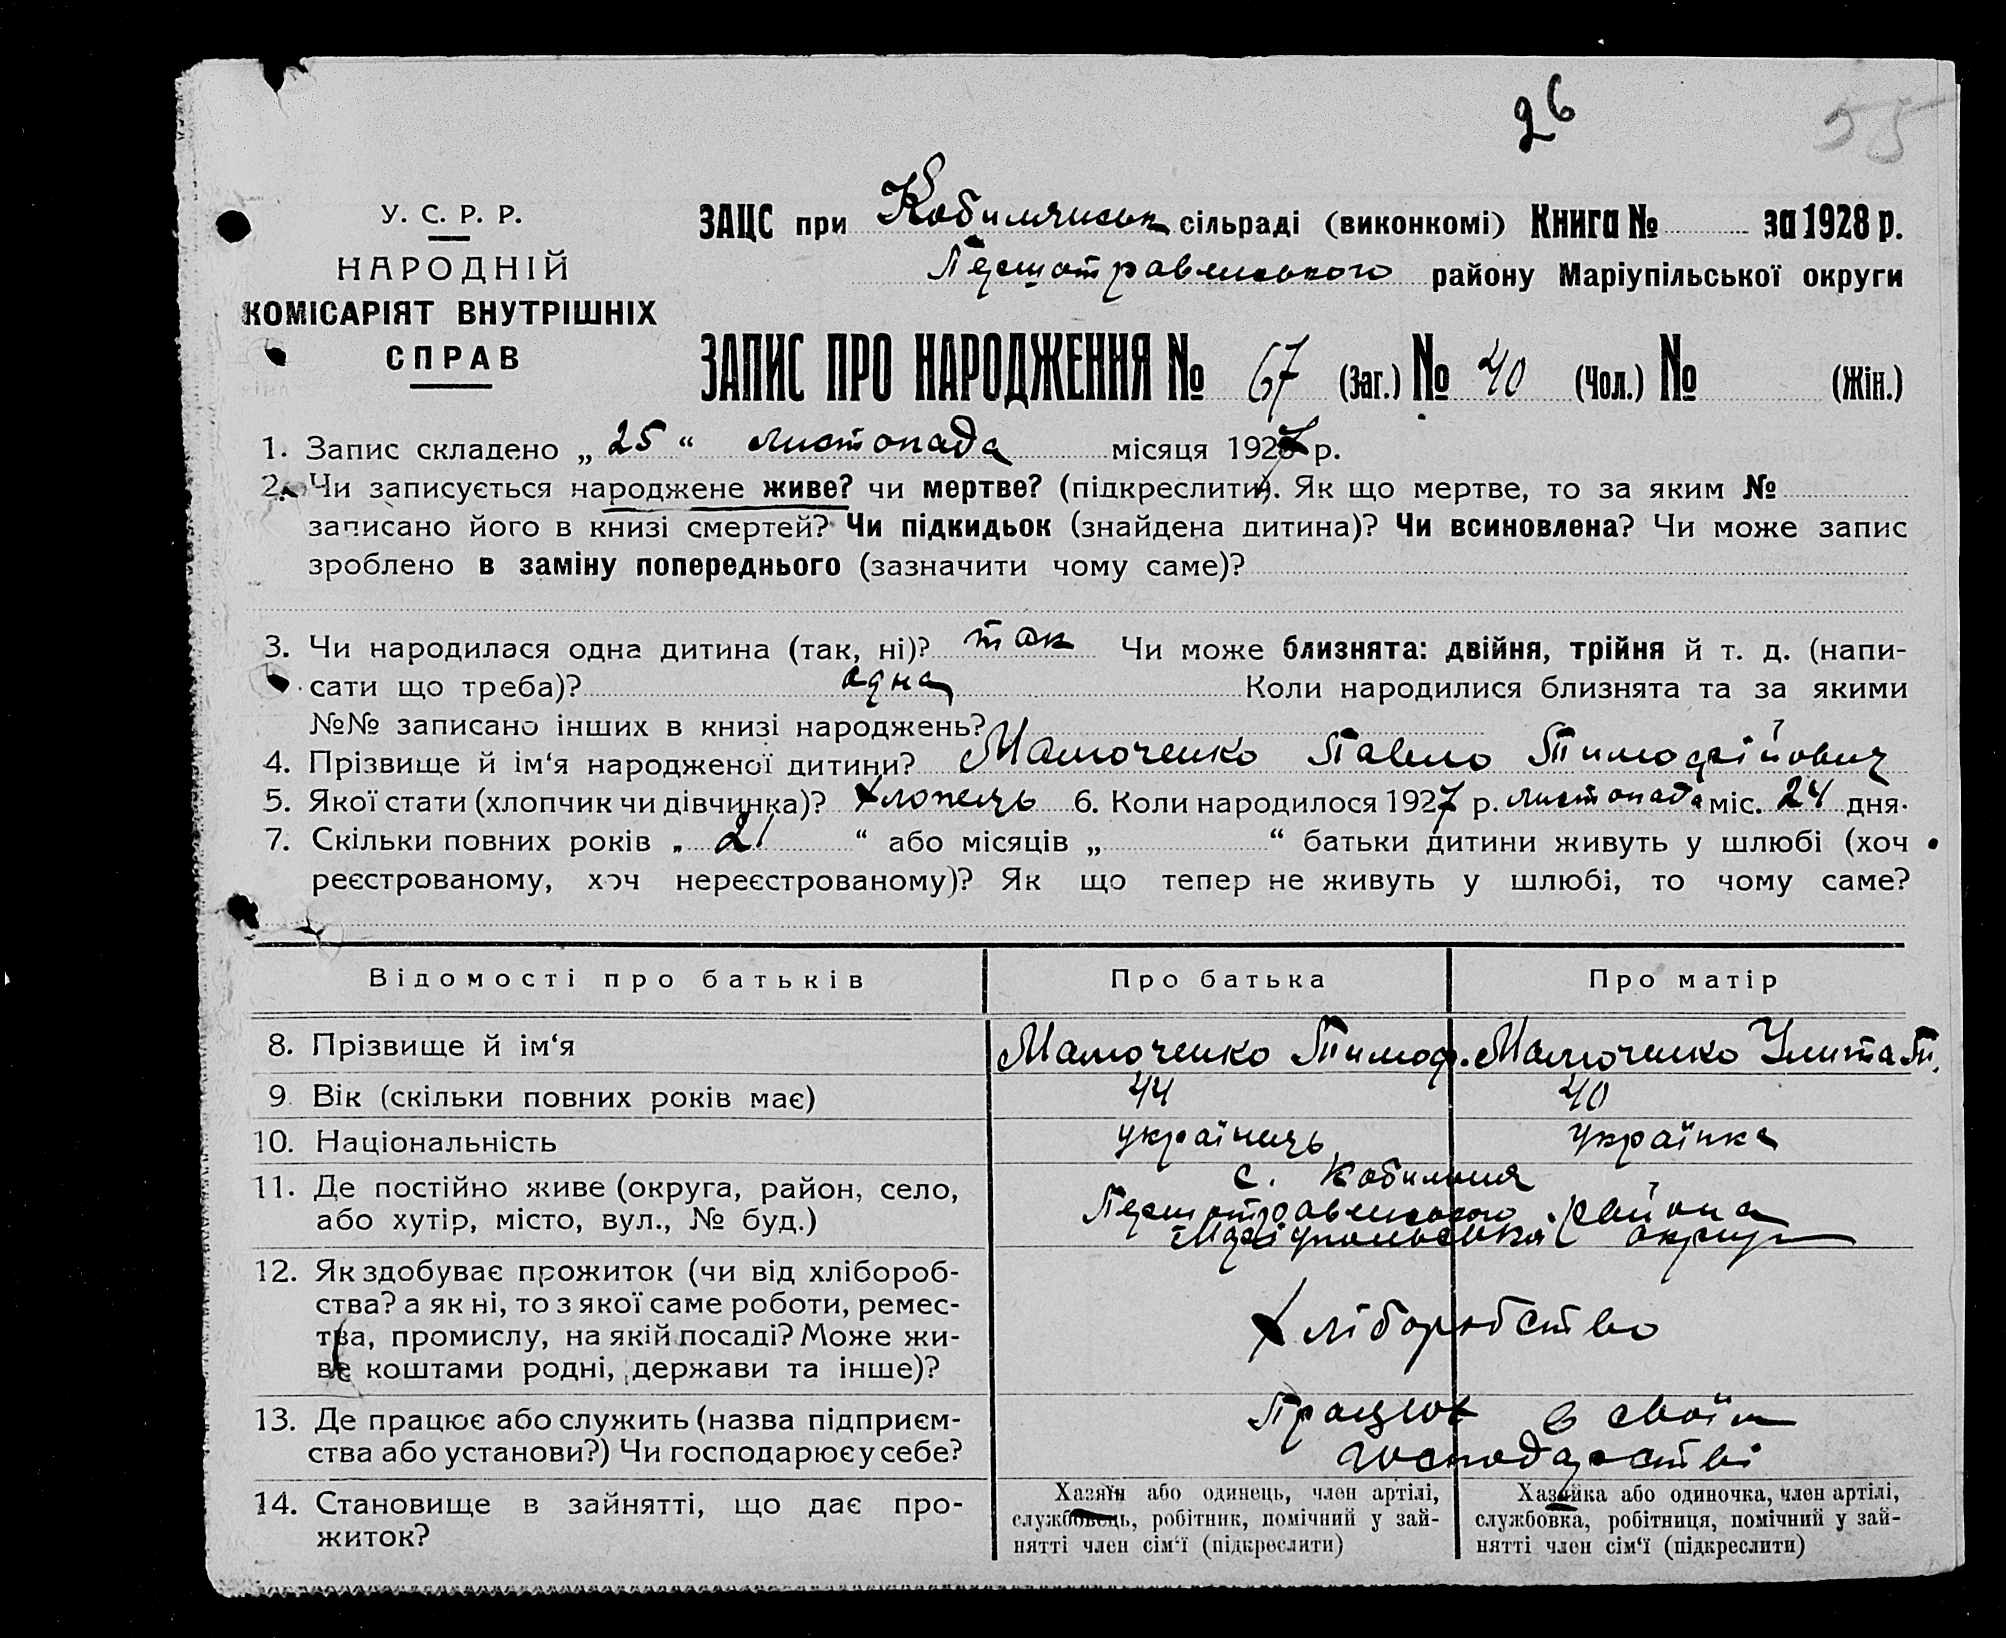 26 55
У. С. Р. Р.
НАРОДНІЙ
КОМІСАРІЯТ ВНУТРІШНІХ
СПРАВ
ЗАЦС при сільраді (виконкомі) Книга № за 1928 р.
Першотравенського району Маріупільської округи
ЗАПИС ПРО НАРОДЖЕННЯ № 67 (Заг.) № 40 (Чол.) № (Жін.)
1. Запис складено „ 25 “ листопада місяця 1927 р.
2. Чи записується народжене живе? чи мертве? (підкреслити). Як що мертве, то за яким №
записано його в книзі смертей? Чи підкидьок (знайдена дитина)? Чи всиновлена? Чи може запис
зроблено в заміну попереднього (зазначити чому саме)?
3. Чи народилася одна дитина (так, ні)? так Чи може близнята: двійня, трійня й т. д. (напи-
сати що треба)? одна Коли народилися близнята та за якими
№№ записано інших в книзі народжень?
4. Прізвище й ім‘я народженої дитини? Мамоченко Павло Тимофійович
5. Якої стати (хлопчик чи дівчинка)? хлопець 6. Коли народилося 1927 р. листопада міс. 24 дня.
7. Скільки повних років „ 21 “ або місяців „ “ батьки дитини живуть у шлюбі (хоч
реєстрованому, хоч нереєстрованому)? Як що тепер не живуть у шлюбі, то чому саме?
Відомості про батьків Про батька Про матір
8. Прізвище й ім‘я Мамоченко Тимоф. Мамоченко Улита
9. Вік (скільки повних років має) 44 40
10. Національність українець українка
11. Де постійно живе (округа, район, село, с. Кобильня
або хутір, місто, вул., № буд.) Першотравенського района
округи
12. Як здобуває прожиток (чи від хлібороб-
ства? а як ні, то з якої саме роботи, ремес-
тва, промислу, на якій посаді? Може жи- хліборобство
ве коштами родні, держави та інше)?
13. Де працює або служить (назва підприєм- Працює в своїм
ства або установи?) Чи господарює у себе? господарстві
14. Становище в зайнятті, що дає про-
житок?
Хазяїн або одинець, член артілі,
службовець, робітник, помічний у зай-
нятті член сім‘ї (підкреслити)
Хазяйка або одиночка, член артілі,
службовка, робітниця, помічний у зай-
нятті член сім‘ї (підкреслити)